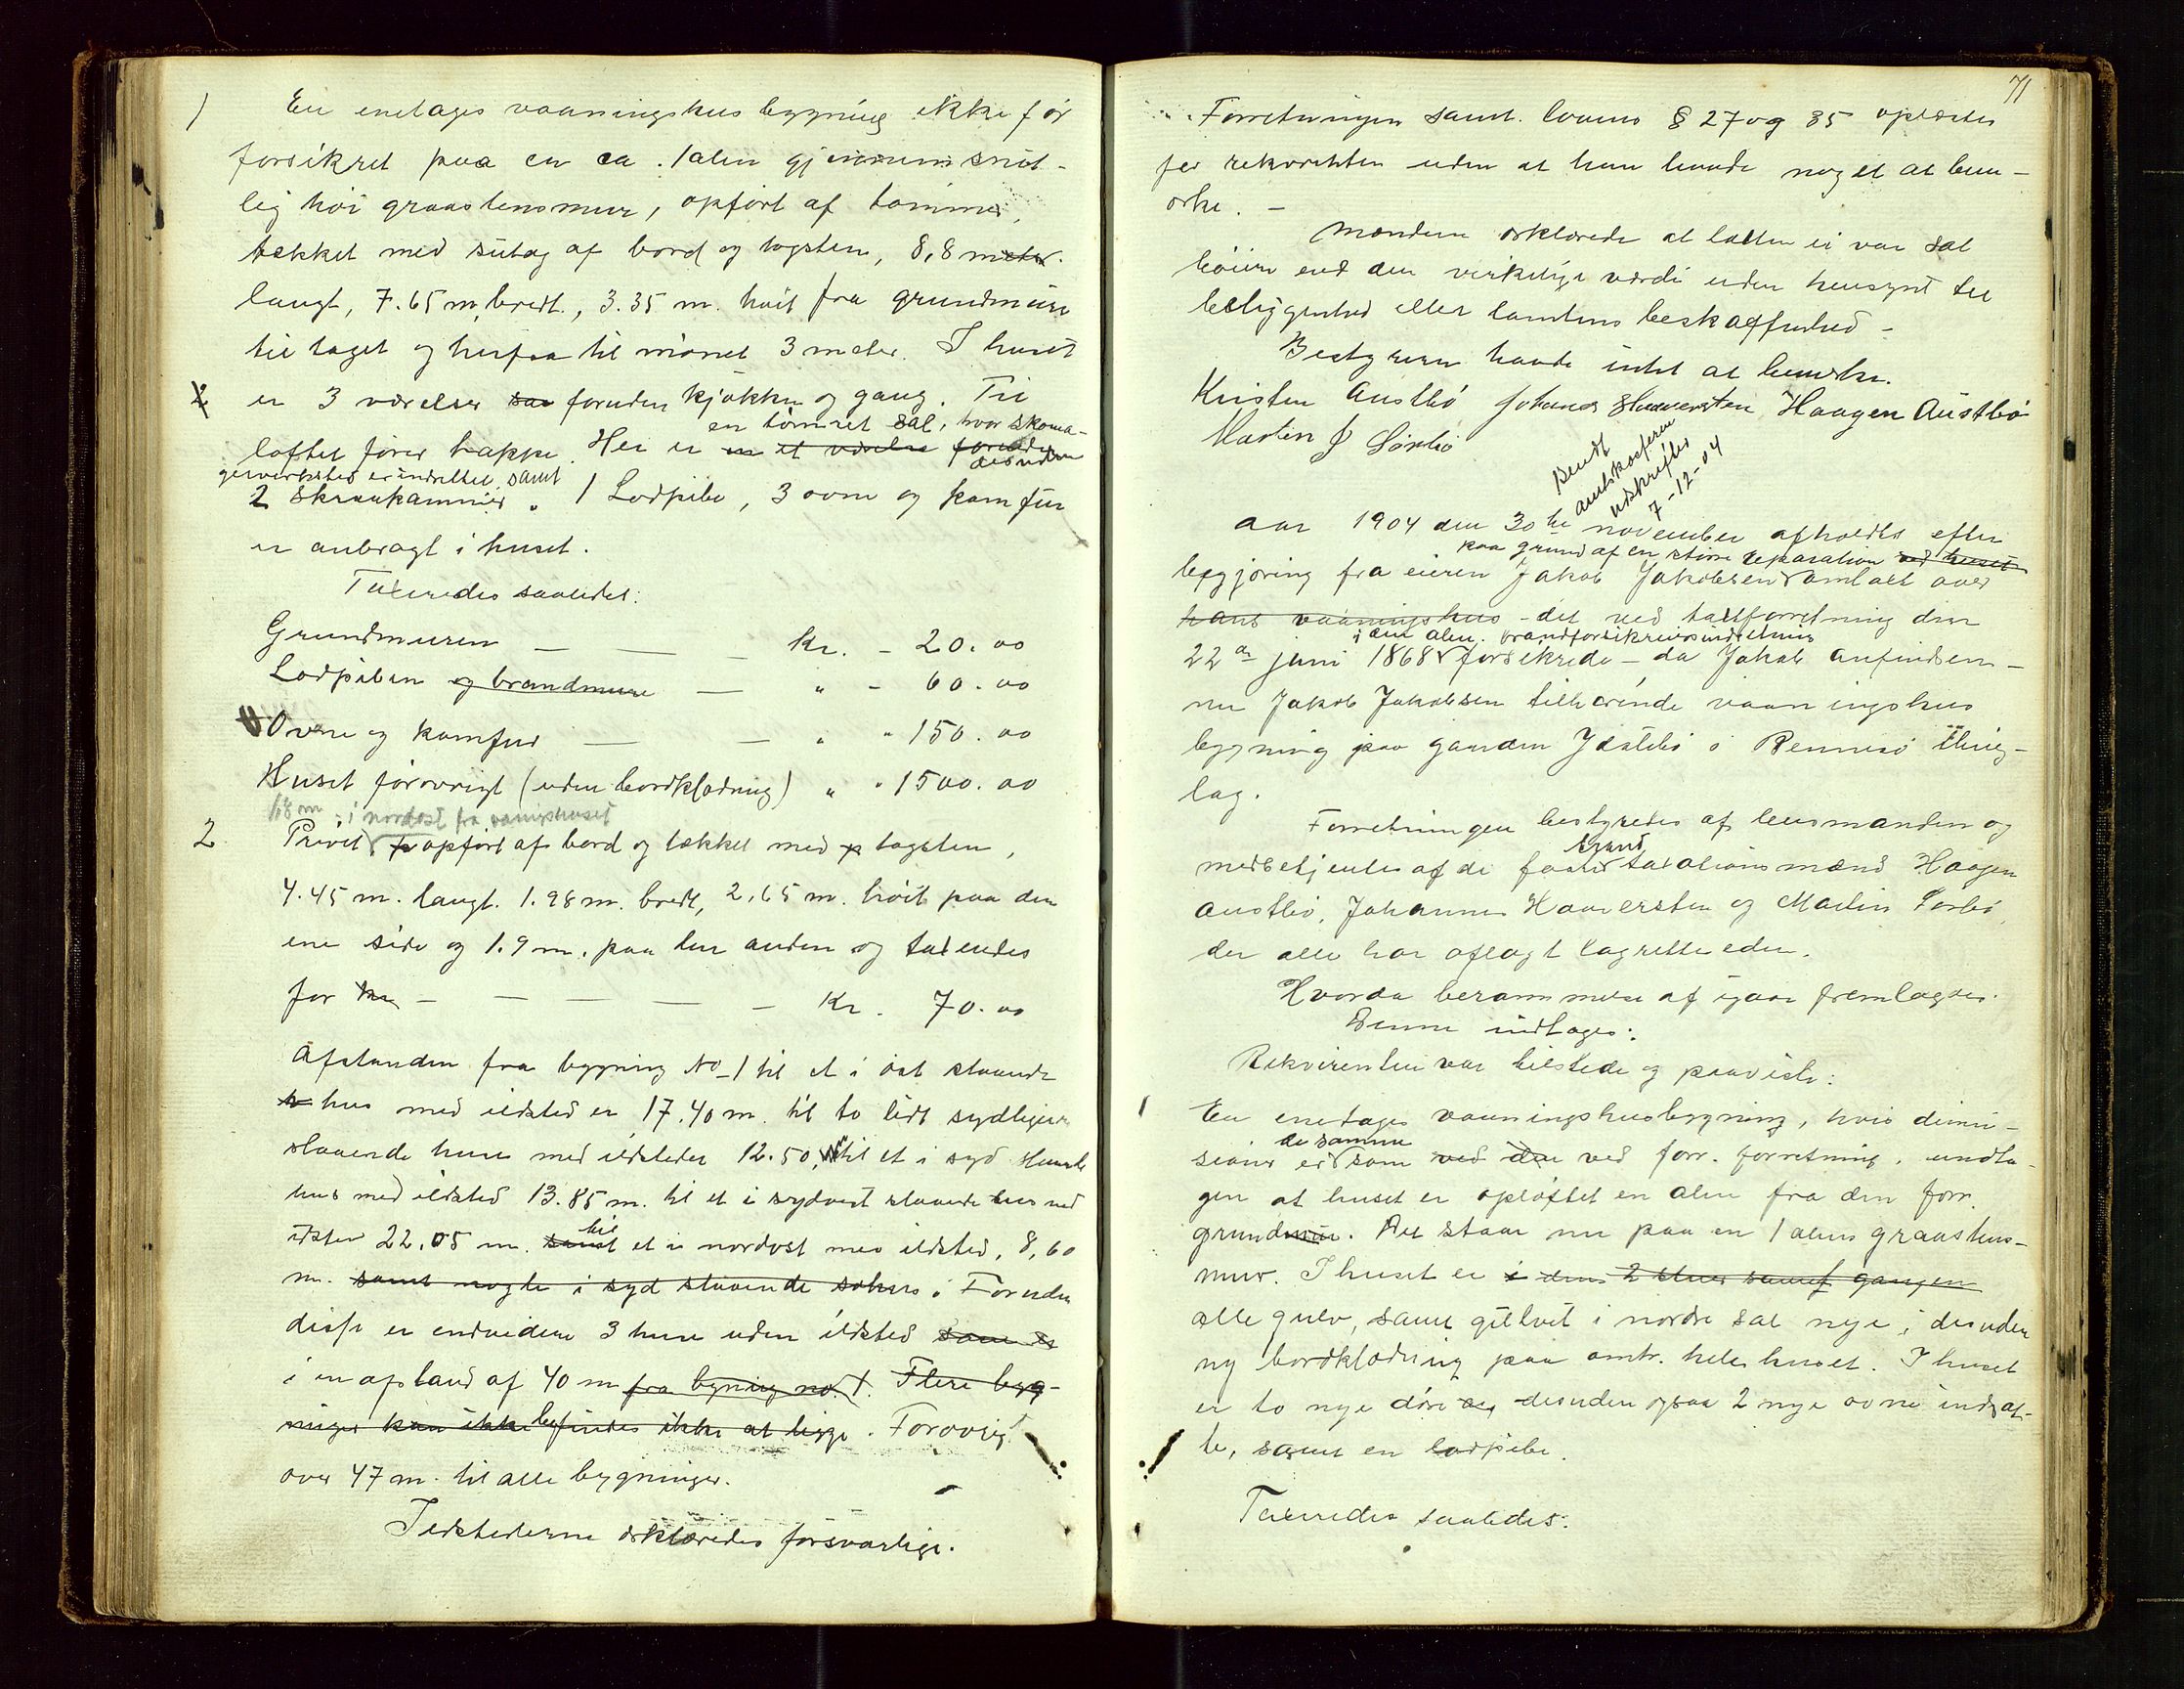 1 En enetages vaaningshusbygning ikke før
forsikret paa en ca. 1 alen gjennemsnit-
lig høi graastensmur, opført af tømmer,
tækket med sutag af bord og tagsten, 8,8 meter
langt, 7.65 m. bredt, 3.35 m. høit fra grundmuren
til taget og herfra til mønet 3 meter. I huset
er 3 værelser foruden kjøkken og gang. Til
en tømret sal, hvor skoma-
loftet fører trappe. Her er et værelse foruden
desuden
gerverksted er indrettet, samt
2 skraakammer. 1 Lodpibe, 3 ovne og komfur
er anbragt i huset.
Taxeredes saaledes:
Grundmuren — — — kr. - 20.00
Lodpiben og brandmure — " - 60.00
Ovne og komfur — — " " 150.00
Huset forøvrigt (uden bordklædning) " " 1500.00
168 m i nordøst fra vaanigshuset
2 Privet opført af bord og tækket med tagsten,
4.45 m. langt. 1.98 m. bredt, 2.65 m. høit paa den
ene side og 1.9 m. paa den anden og taxeredes
for kr — — — — — Kr. 70.00
Afstanden fra bygning No 1 til et i øst staaende
hus med ildsted er 17.40 m. til to lidt sydligere
staaende huse med ildsteder 12.50, til et i syd staaende
hus med ildsted 13.85 m. til et i sydvest staaende hus med
til
ildsted 22.05 m. samt et i nordost med ildsted, 8,60
m. samt nogle i syd staaende Foruden
disse er endvidere 3 huse uden ildsted
i en afstand af 40 m fra bygning no. 1. Flere byg-
ninger kan ikke befindes ikke at ligge. Forøvrigt
over 47 m. til alle bygninger.
Ildstederne erklæredes forsvarlige.
71
Forretningen samt lovens § 27 og 35 oplæstes
for rekvirenten uden at han havde noget at bem-
ærke. —
Mændene erklærede at taxten ei var sat
høiere end den virkelige værdi uden hensyn til
beliggenhed eller tomtens beskaffenhed —
Bestyreren havde intet at bemerke.
Kristen Austbø Johannes Haaversten Haagen Austbø
Martin J Sørbø
Sendt
amtskasseren
udskriften
7-12-04
Aar 1904 den 30te november afholdtes efter
paa grund af en større reparation ved huset
begjæring fra eieren Jakob Jakobsen omtaxt over
hans vaaningshus - det ved taxtforretning den
i den alm. brandforsikringsindretning
22de juni 1868 forsikrede — da Jakob Anfindsen —
nu Jakob Jakobsen tilhørende vaaningshus
bygning paa gaarden i Rennesø thing-
lag.
Forretningen bestyredes af lensmanden og
brand
medbetjentes af de faste taxationsmænd Haagen
Austbø, Johannes Haaversten og Martin Sørbø,
der alle har aflagt lagretteeden.
Hvorda berammelse af igaar fremlagdes.
Denne indtages:
Rekvirenten var tilstede og paaviste:
1 En enetages vaaningshusbygning, hvis dimen-
de samme
sioner er som ved den ved forr. forretning, undta-
gen at huset er opløftet en alen fra den forr.
grundmur. Det staar nu paa en 1 alens graastens-
mur. I huset er i den 2 stuer samt gangen
alle gulv, samt gulvet i nordre sal nye, desuden
ny bordklædning paa omtr. hele huset. I huset
er to nye døre og desuden ogsaa 2 nye ovne indsat-
te, samt en lodpibe.
Taxeredes saaledes: